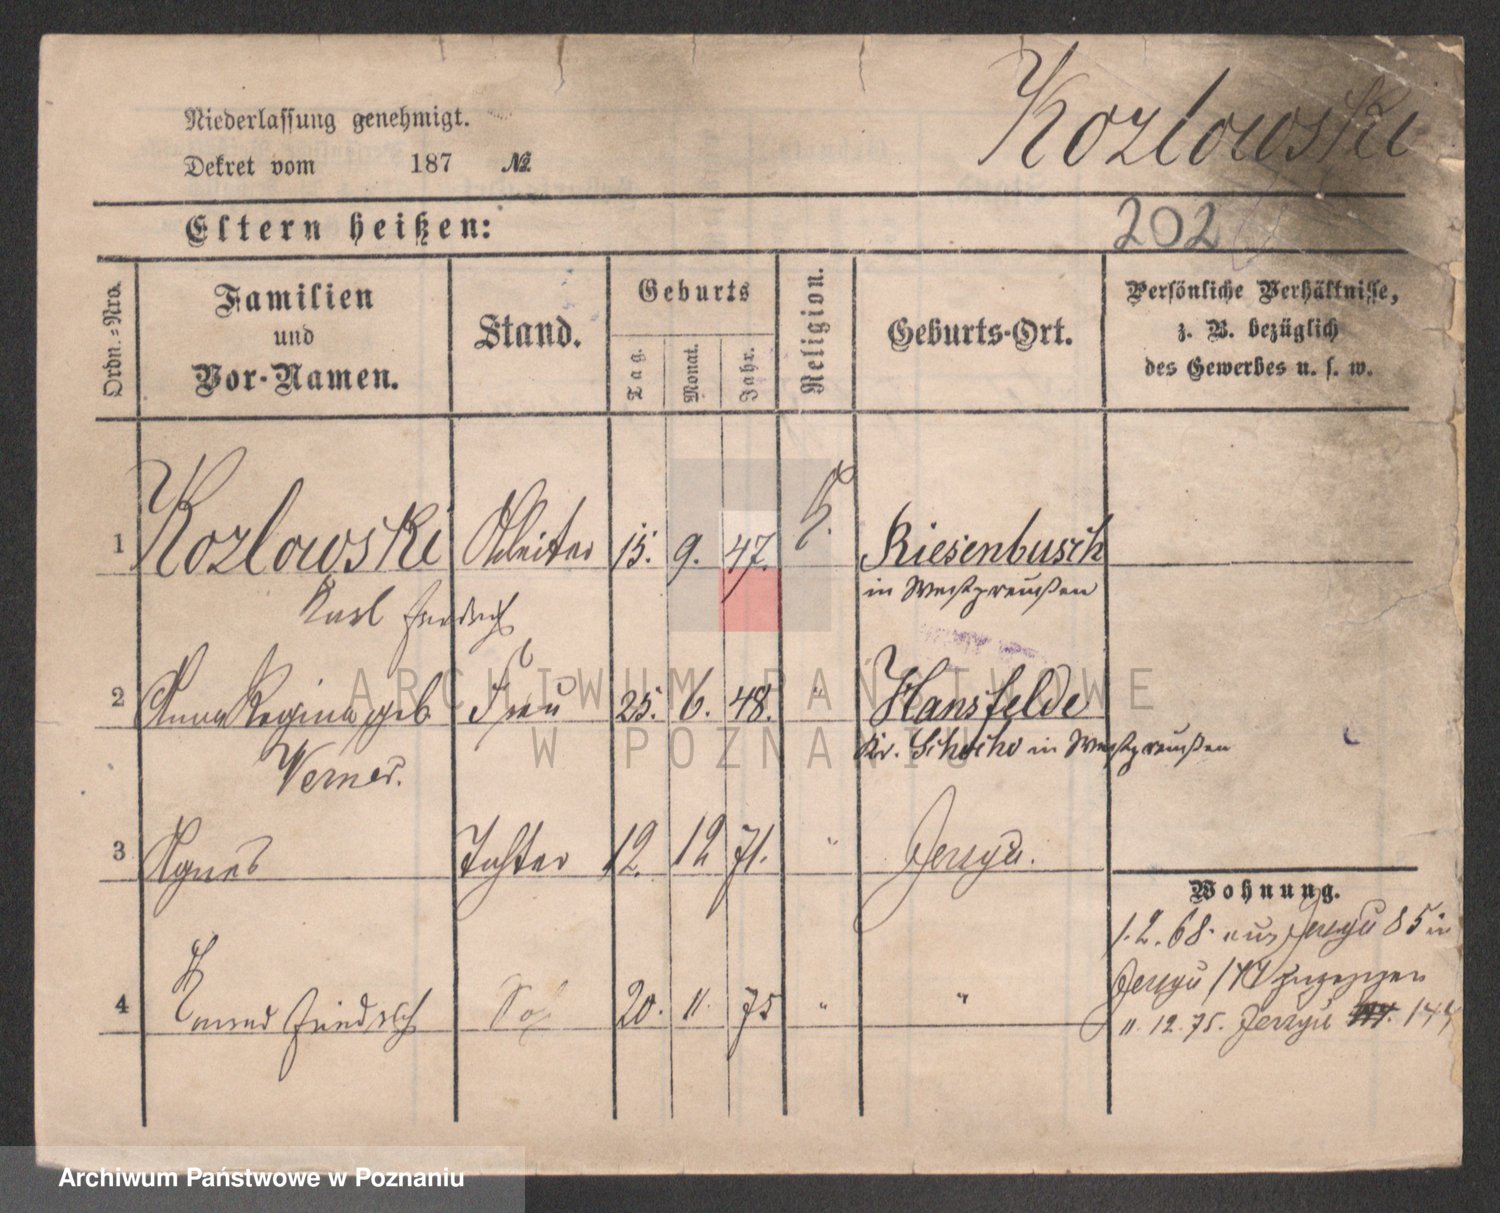 Kozlowski
Niederlassung genehmigt.
Dekret vom 187 №
Eltern heißen:
202
Ordn.-Nro.
Familien
und
Vor-Namen.
Stand.
Geburts
Tag.
Monat.
Jahr.
Religion.
Geburts-Ort.
Persönliche Verhältnisse,
z. B. bezüglich
des Gewerbes u. s. w.
1 Kozlowski Arbeiter 15. 9. 47. Riesenbusch
Karl Friedrich in Westpreußen
2 Anna Regina geb. Frau 25. 6. 48. " Hansfelde
Werner. Kr. in Westpreußen
3 Agnes Tochter 12. 12 71. " Jerzyce.
Wohnung.
1.2.68. aus Jerzyce 85 in
Jerzyce zugezogen
4 Friedrich 20. 11. 75 " "
11.12.75. Jerzyce 144
ARCHIWUM PAŃSTWOWE
W POZNANIU
Archiwum Państwowe w Poznaniu